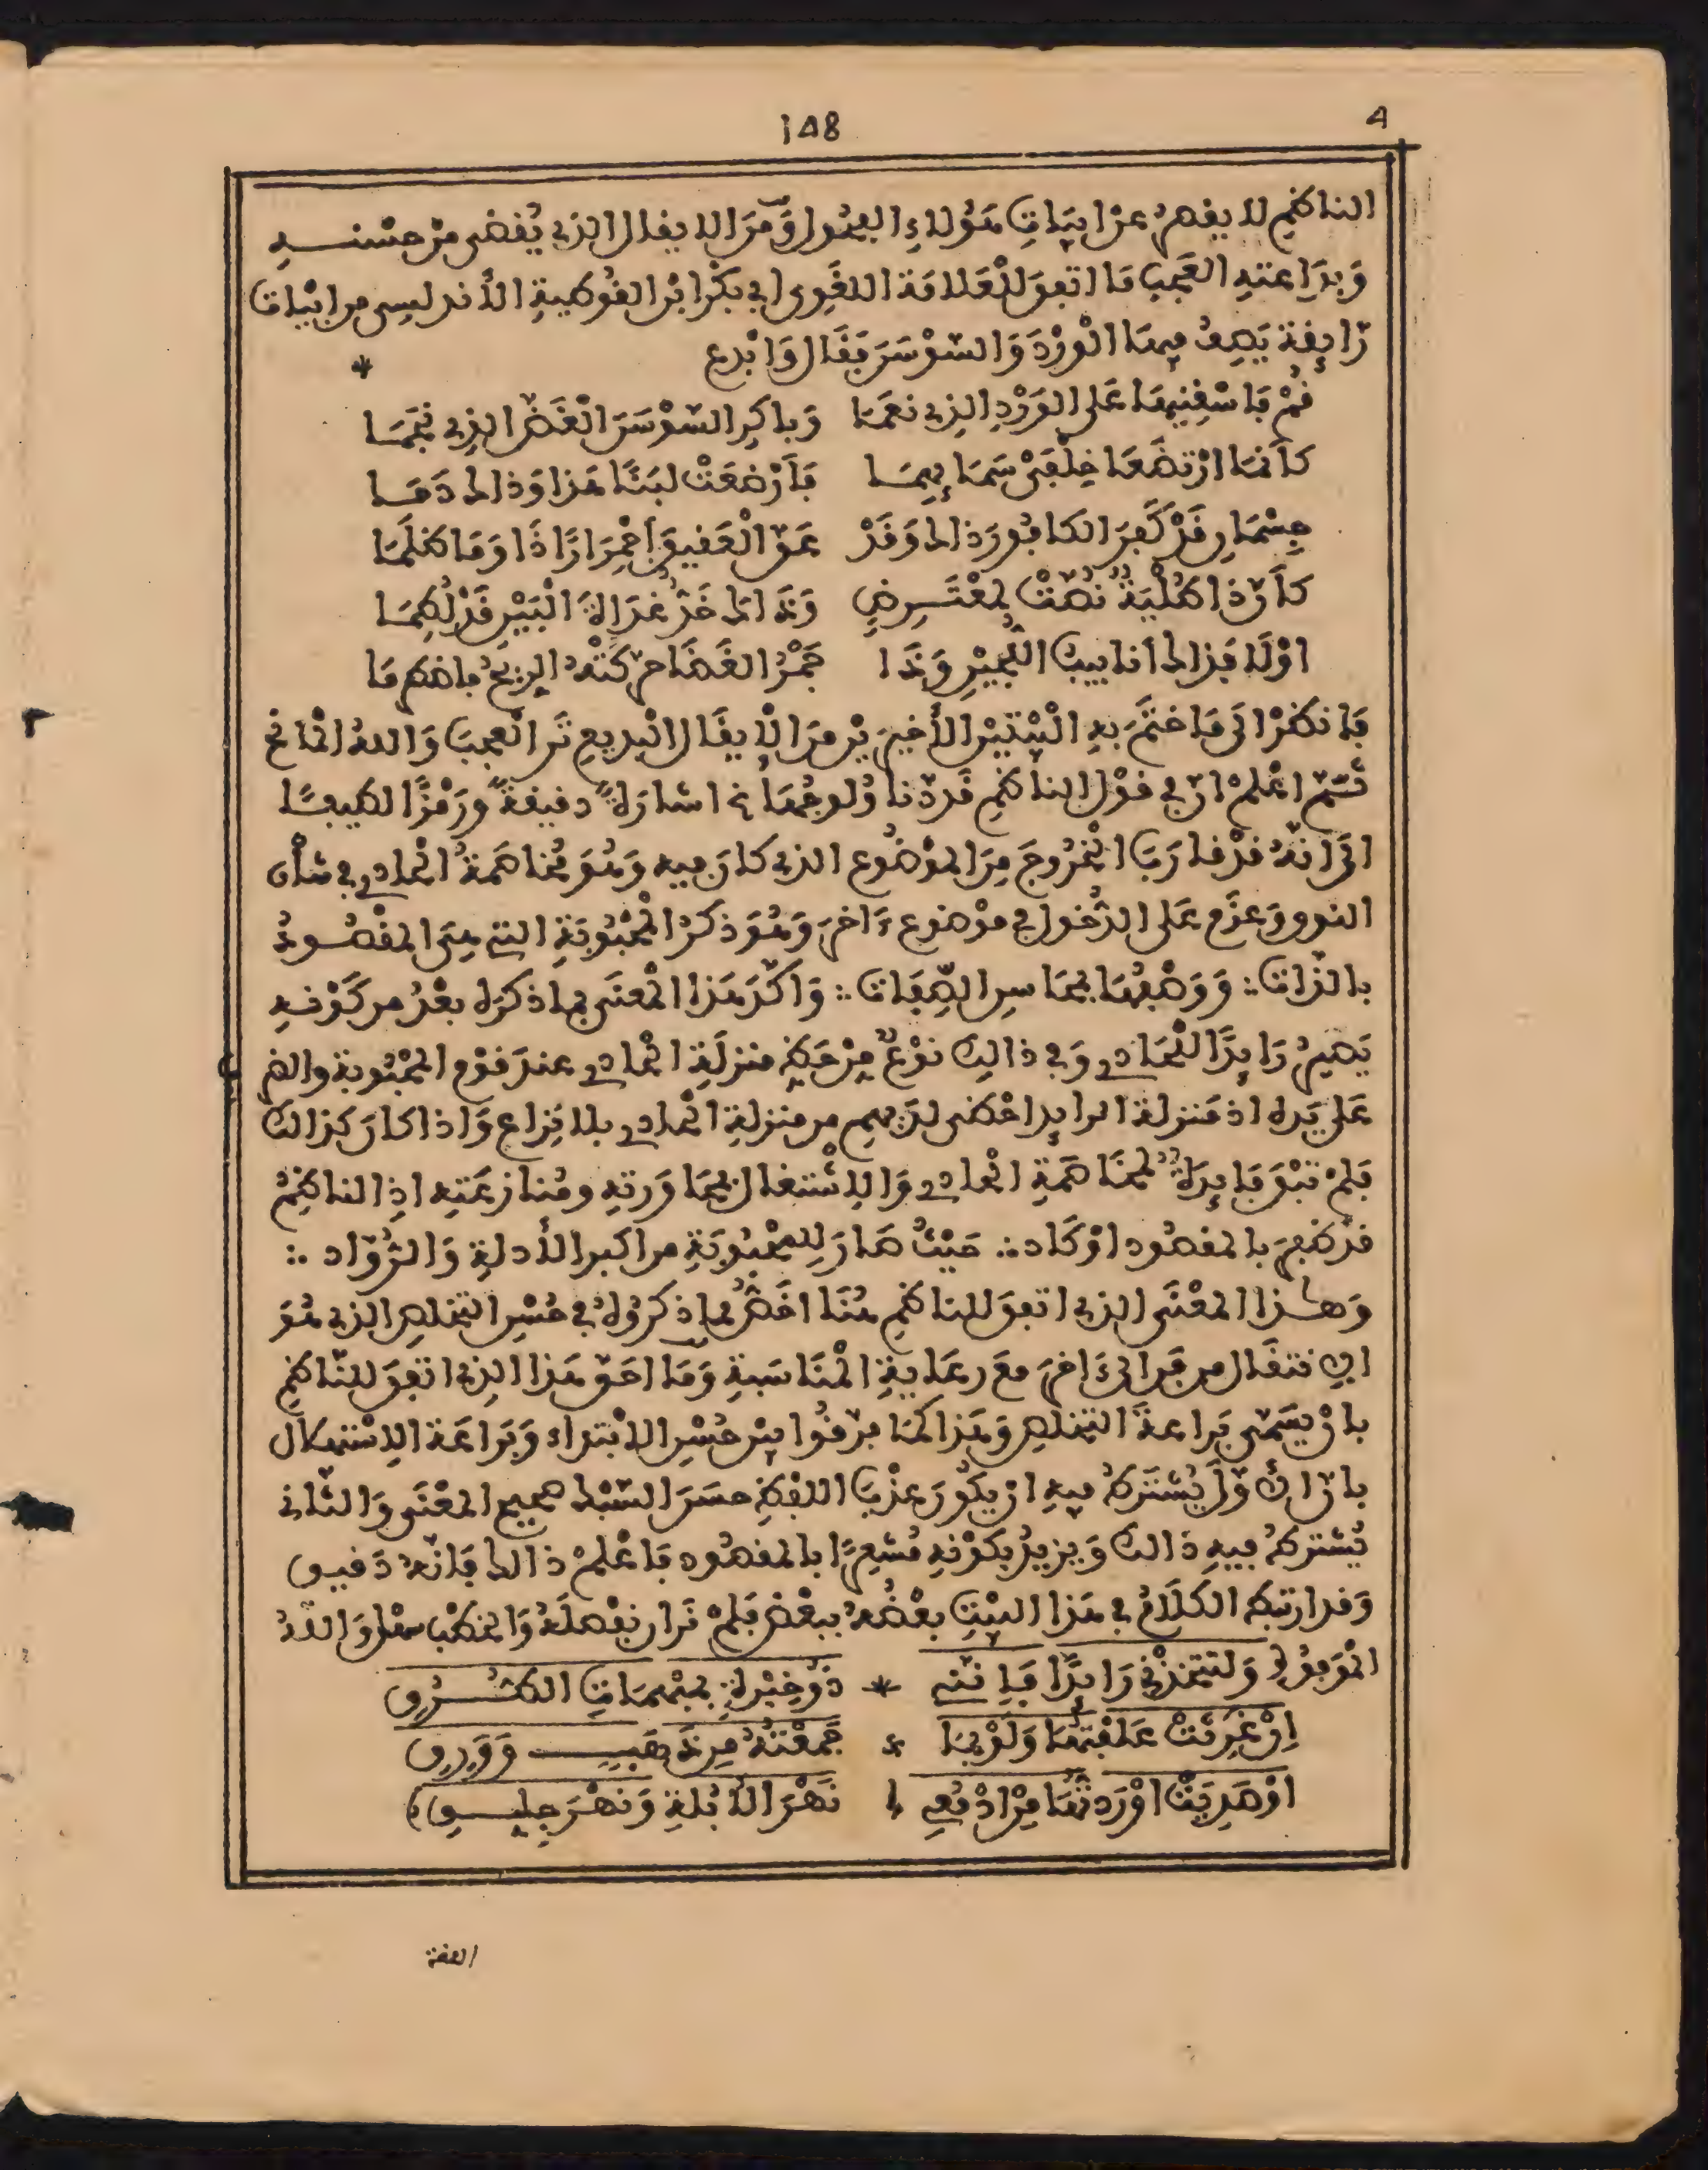 158
4
الناظم لا يقصر عن ابيات هؤلاء الفحول ومن الايغال الذي يُقضى من حسنه
وبداعته العجب ما اتفق للعلامة اللغوي ابي بكر ابن القوطية الأندلسي من ابيات
رايقة يصف فيها الورد والسوسن فقال وابدع *
قم فاسقنيها على الورد الذي نعما وباكر السوسن الغض الذي نجما
كأنما ارتضعا خلفي سمايهما فأرضعت لبنًا هذا وذاك دما
جسمان قد كفر الكافور ذاك وقد عق العقيق احمرارًا ذا وما ظلما
كأن ذا طلية نصت لمعترض وذاك خد غداة البين قد لطما
اولا فذاك أنابيب اللجين وذا جمر الغضا حركته الريح فاضطرما
فانظر الى ما ختم به البيتين الأخيرين من الايغال البديع تر العجب والله المانح
ثم اعلم ان في قول الناظم قدنا ولوجها اشارة دقيقة ورمزًا لطيفًا
الى انه قد قارب الخروج من الموضوع الذي كان فيه وهو مخاصمة الحادي في شأن
النوق وعزم على الدخول في موضوع ءاخر وهو ذكر المحبوبة التي هي المقصود
بالذات ∴ ووصفها بمحاسن الصفات ∴ واكد هذا المعنى بما ذكره بعد من كونه
يصير رايدًا للحادي وفي ذالك نوع من حط منزلة الحادي عند قوم المحبوبة والغض
على يده اذ منزلة الرايد احظى لديهم من منزلة الحادي بلا نزاع واذا كان كذالك
فلم تبق فايدة لمخاصمة الحادي والاشتغال بمحاورته ومنازعته اذ الناظم
قد ظفر بالمقصود او كاد ∴ حيث صار للمحبوبة من اكبر الأدلة والرواد ∴
وهذا المعنى الذي اتفق للناظم هنا اخص لما ذكروه في حسن التخلص الذي هو
الانتقال من فن الى ءاخر مع رعاية المناسبة وما احق هذا الذي اتفق للناظم
بان يسمى براعة التخلص وهذا كما فرقوا بين حسن الابتداء وبراعة الاستهلال
بان الأول يشترط فيه ان يكون عذب اللفظ حسن السبك صحيح المعنى والثاني
يشترط فيه ذالك ويزيد بكونه مشعرًا بالمقصود فاعلم ذالك فانه دقيق
وقد ارتبط الكلام في هذا البيت بعضه ببعض فلم نر ان نفصله والخطب سهل والله
الموفق ولتتخذني رايدًا فانني * ذو خبرة بمبهمات الطرق
إن غرثت علفتها ولو بما * جمعته من ذهب وورق
او صديت اوردتها من ادمعي نهر الأبلة ونهر جلق
اللغة